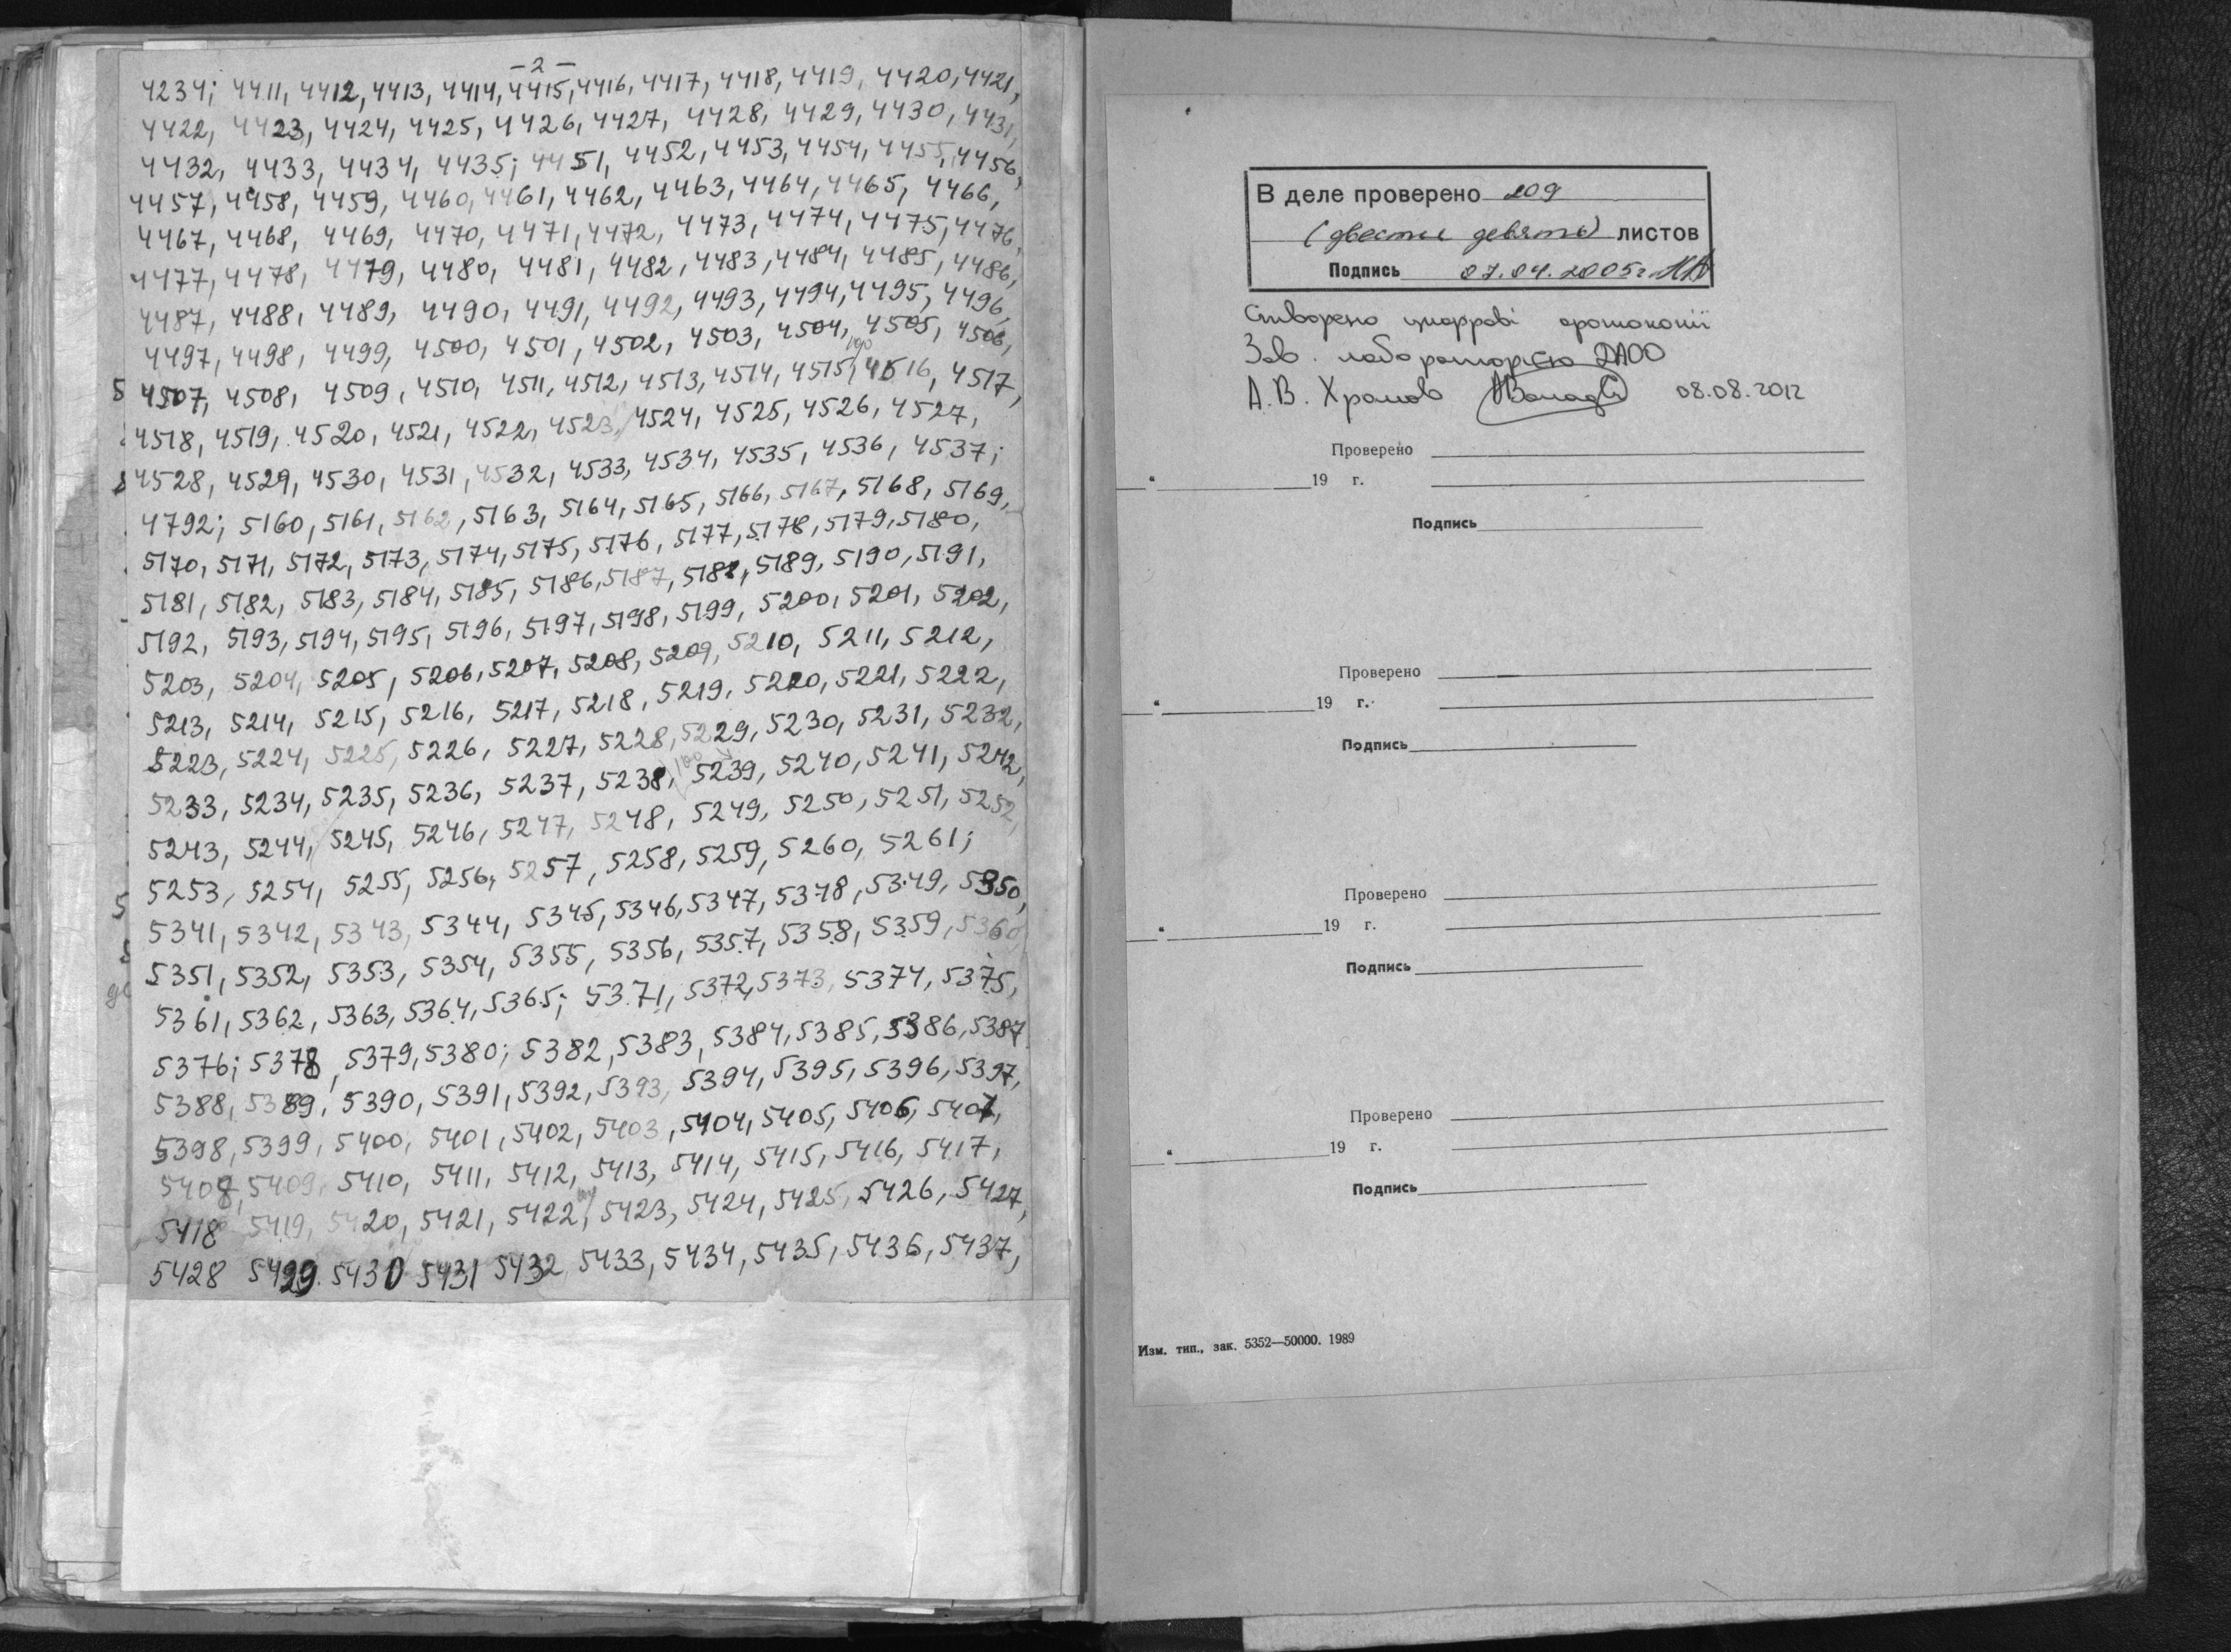 - 2 -
4234; 4411, 4412, 4413, 4414, 4415, 4416, 4417, 4418, 4419, 4420, 4421,
4422, 4423, 4424, 4425, 4426, 4427, 4428, 4429, 4430, 4431,
4432, 4433, 4434, 4435; 4451, 4452, 4453, 4454, 4455, 4456,
4457, 4458, 4459, 4460, 4461, 4462, 4463, 4464, 4465, 4466,
4467, 4468, 4469, 4470, 4471, 4472, 4473, 4474, 4475, 4476,
4477, 4478, 4479, 4480, 4481, 4482, 4483, 4484, 4485, 4486,
4487, 4488, 4489, 4490, 4491, 4492, 4493, 4494, 4495, 4496,
4497, 4498, 4499, 4500, 4501, 4502, 4503, 4504, 4505, 4506,
4507, 4508, 4509, 4510, 4511, 4512, 4513, 4514, 4515, 4516, 4517,
4518, 4519, 4520, 4521, 4522, 4523, 4524, 4525, 4526, 4527,
4528, 4529, 4530, 4531, 4532, 4533, 4534, 4535, 4536, 4537;
4792; 5160, 5161, 5162, 5163, 5164, 5165, 5166, 5167, 5168, 5169,
5170, 5171, 5172, 5173, 5174, 5175, 5176, 5177, 5178, 5179, 5180,
5181, 5182, 5183, 5184, 5185, 5186, 5187, 5188, 5189, 5190, 5191,
5192, 5193, 5194, 5195, 5196, 5197, 5198, 5199, 5200, 5201, 5202,
5203, 5204, 5205, 5206, 5207, 5208, 5209, 5210, 5211, 5212,
5213, 5214, 5215, 5216, 5217, 5218, 5219, 5220, 5221, 5222,
5223, 5224, 5225, 5226, 5227, 5228, 5229, 5230, 5231, 5232,
5233, 5234, 5235, 5236, 5237, 5238, 5239, 5240, 5241, 5242,
5243, 5244, 5245, 5246, 5247, 5248, 5249, 5250, 5251, 5252,
5253, 5254, 5255, 5256, 5257, 5258, 5259, 5260, 5261;
5341, 5342, 5343, 5344, 5345, 5346, 5347, 5348, 5349, 5350,
5351, 5352, 5353, 5354, 5355, 5356, 5357, 5358, 5359, 5360,
5361, 5362, 5363, 5364, 5365; 5371, 5372, 5373, 5374, 5375,
5376; 5378, 5379, 5380; 5382, 5383, 5384, 5385, 5386, 5387
5388, 5389, 5390, 5391, 5392, 5393, 5394, 5395, 5396, 5397,
5398, 5399, 5400, 5401, 5402, 5403, 5404, 5405, 5406, 5407,
5408, 5409, 5410, 5411, 5412, 5413, 5414, 5415, 5416, 5417,
5418 5419, 5420, 5421, 5422, 5423, 5424, 5425, 5426, 5427,
5428 5429 5430 5431 5432 5433, 5434, 5435, 5436, 5437,
В деле проверено 209
(двести девять) листов
Подпись 07.04.2005г.
Створено цифрові фотокопії
Зав. лабораторією ДАОО
А.В. Храмов 08.08.2012
Проверено
" 19 г.
Подпись
Проверено
" 19 г.
Подпись
Проверено
" 19 г.
Подпись
Проверено
" 19 г.
Подпись
Изм. тип., зак. 5352—50000. 1989